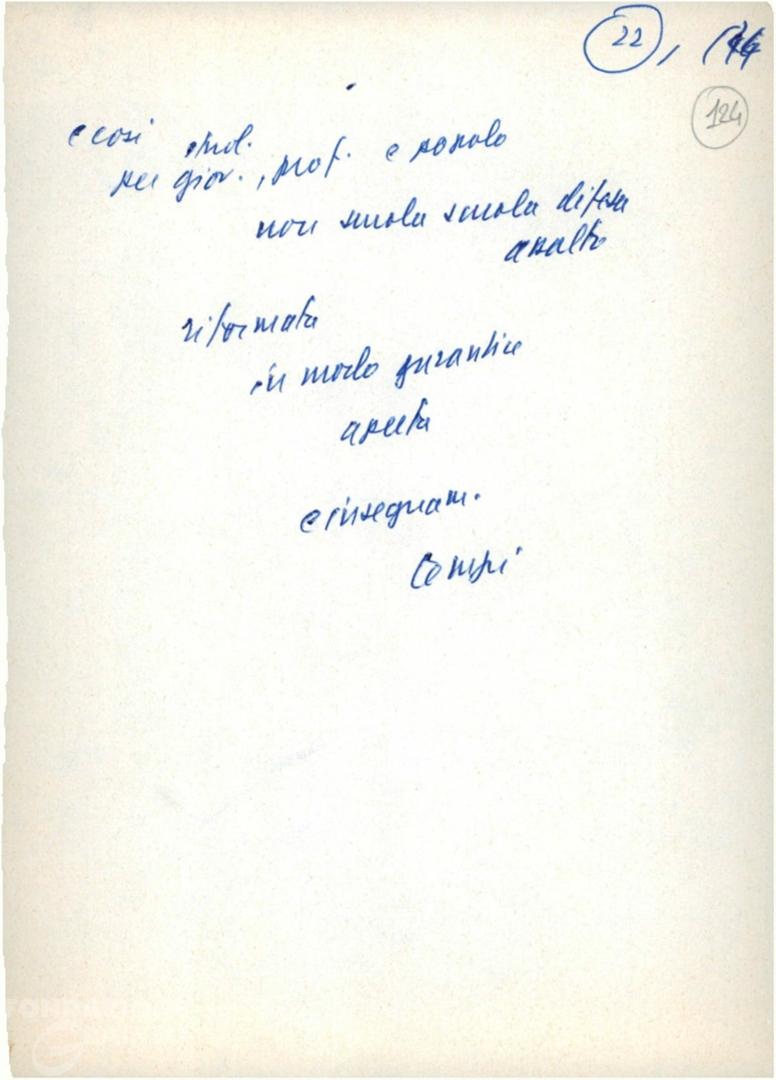 22
124
e così stud.
per giov., prof. e popolo
non scuola scuola difesa
assalto
riformata
in modo garantire
aperta
e insegnam.
Compi
FONDAZI